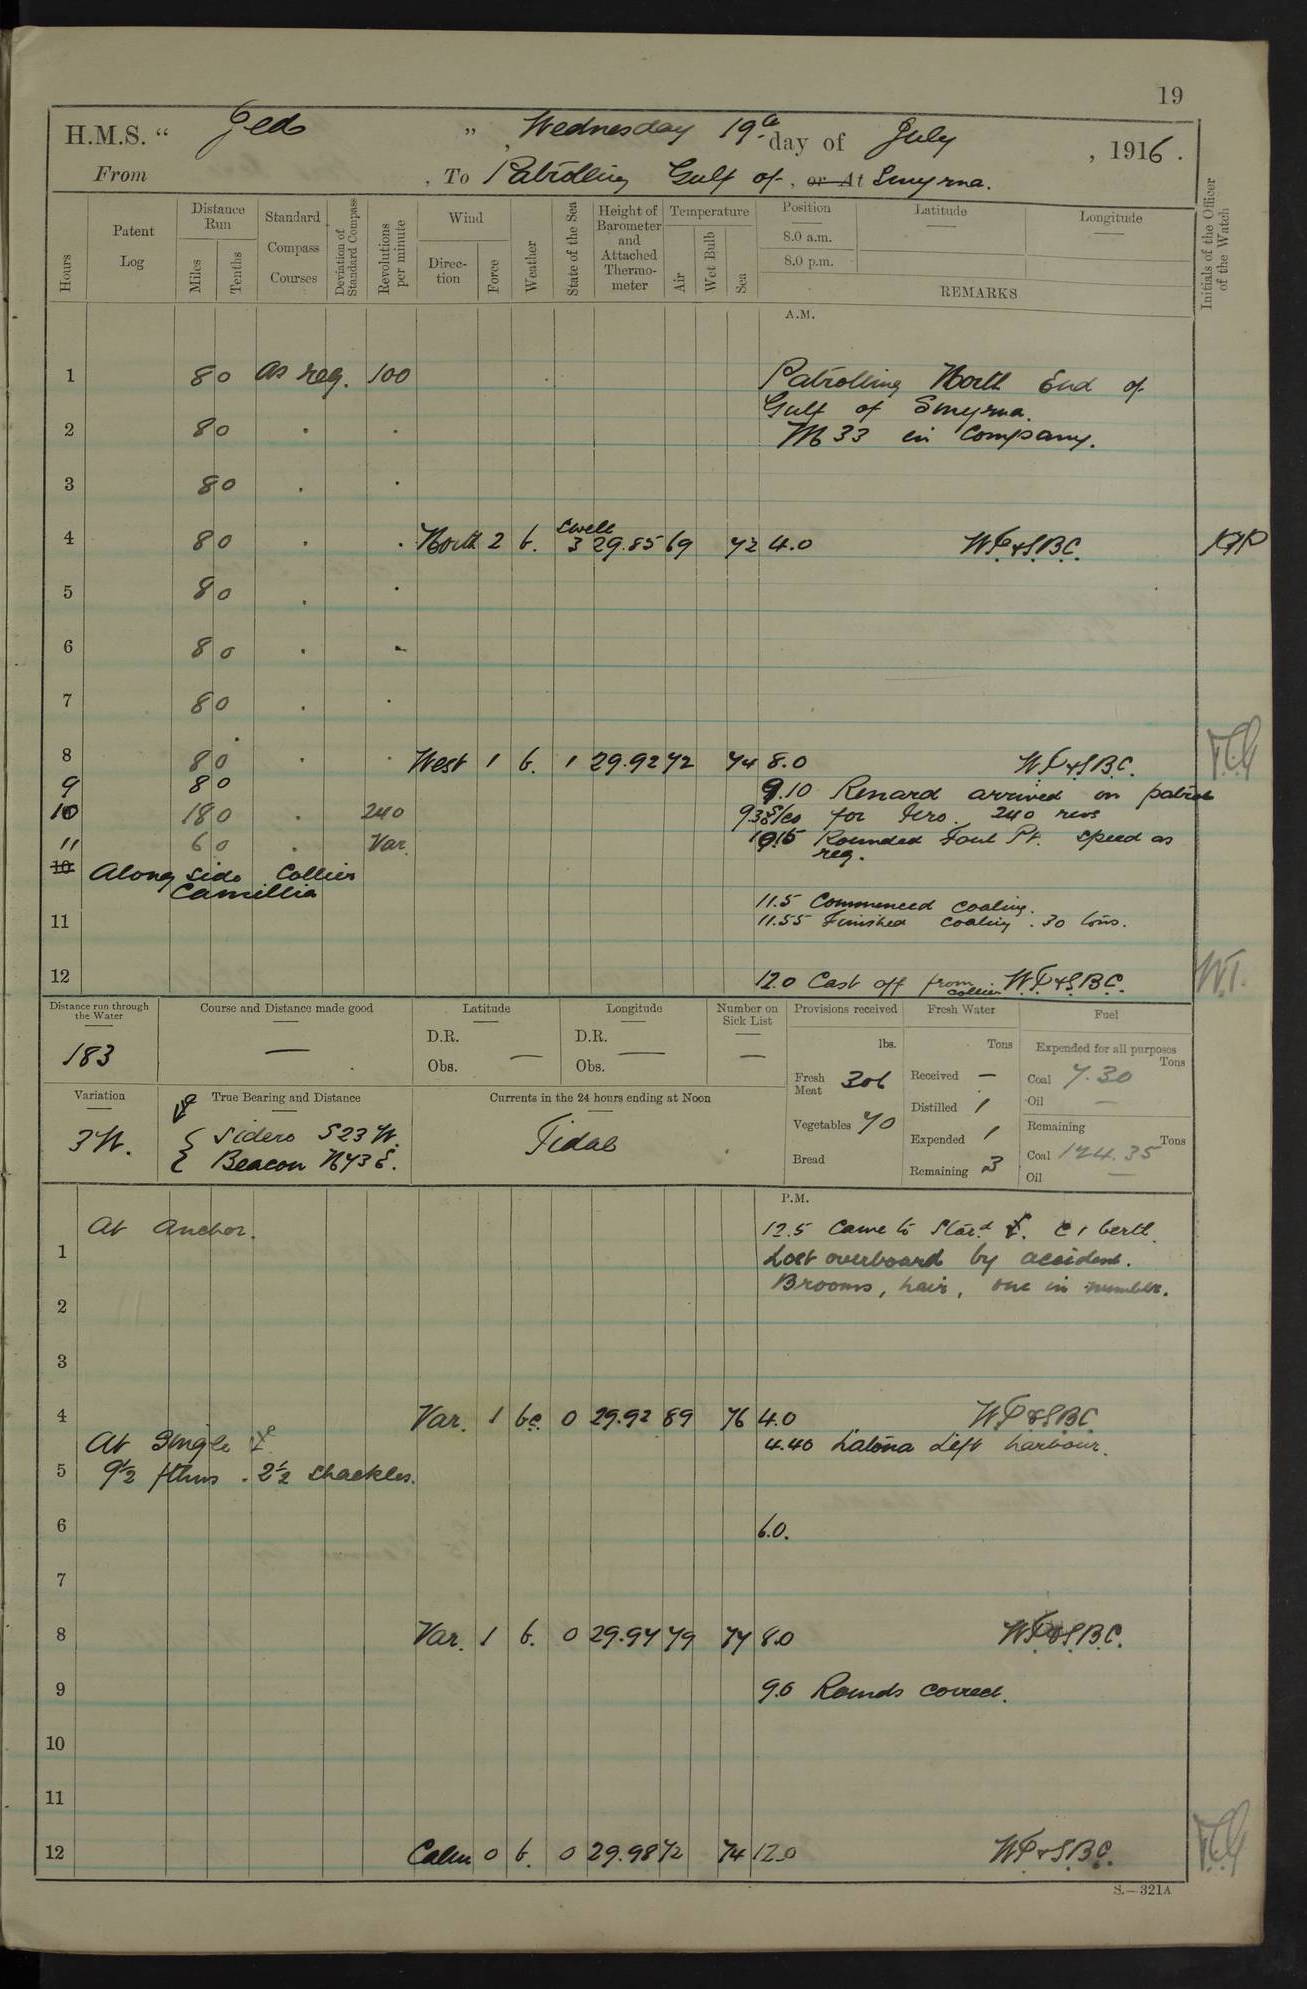 19
H.M.S. "Jed", Wednesday 19th day of July, 1916.
From , To Patrolling Gulf of, or At Smyrna.
Hours
Patent Log
Distance Run
Miles
Tenths
Standard Compass Courses
Deviation of Standard Compass
Revolutions per minute
Wind
Direction
Force
Weather
State of the Sea
Height of Barometer and Attached Thermometer
Temperature
Air
Wet Bulb
Sea
Position
8.0 a.m.
8.0 p.m.
Latitude
Longitude
REMARKS
Initials of the Officer of the Watch
A.M.
1 8 0 as req. 100 Patrolling North End of
Gulf of Smyrna.
2 8 0 . . M33 in Company.
3 8 0 . .
4 8 0 . . North 2 b. Swell 3 29.85 69 72 4.0 WT&SBC.
5 8 0 . .
6 8 0 . .
7 8 0 . .
8 8 0 . . West 1 b. 1 29.92 72 74 8.0 WT&SBC.
9 8 0 9.10 Renard arrived on patrol
10 18 0 . 240 938 S/co for Iero. 240 revs
11 6 0 . Var. 10.15 Rounded Foul Pt. Speed as
req.
10 Along side Collier
Camillia
11.5 Commenced Coaling.
11 11.55 Finished Coaling. 30 tons.
12 12.0 Cast off from collier WT&SBC. W.T.
Distance run through the Water
183
Course and Distance made good
—
Latitude
D.R.
Obs. —
Longitude
D.R.
Obs. —
Number on Sick List
—
Provisions received
lbs.
Fresh Meat 306
Vegetables 70
Bread
Fresh Water
Tons
Received —
Distilled 1
Expended 1
Remaining 3
Fuel
Expended for all purposes
Tons
Coal 7.30
Oil —
Remaining
Tons
Coal 124.35
Oil —
Variation
3W.
True Bearing and Distance
Sidero S23W.
Beacon N43E.
Currents in the 24 hours ending at Noon
Tidal
P.M.
At Anchor. 12.5 Came to Star'd. C1 berth.
1 Lost overboard by accident.
Brooms, hair, one in number.
2
3
4 Var. 1 bc. 0 29.92 89 76 4.0 WT&SBC
At Single 4.40 Latona Left harbour.
5 9½ fthms. 2½ Shackles.
6 6.0.
7
8 Var. 1 b. 0 29.94 79 74 8.0 WT&SBC.
9 9.0 Rounds correct.
10
11
12 Calm 0 b. 0 29.98 72 74 12.0 WT&SBC.
S.—321A